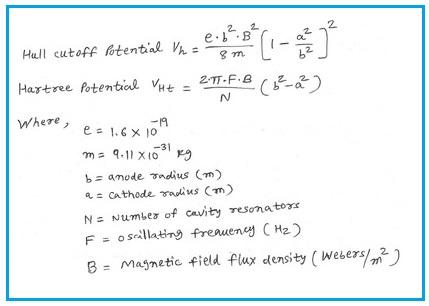 Hull cutoff Potential Vh = e·b²·B² / 8m [1 - a²/b²]²
Hartree Potential VHt = 2·π·F·B / N (b²-a²)
Where,
e = 1.6 × 10⁻¹⁹
m = 9.11×10⁻³¹ kg
b = anode radius (m)
a = cathode radius (m)
N = Number of cavity resonators
F = oscillating frequency (Hz)
B = Magnetic field flux density (Webers/m²)